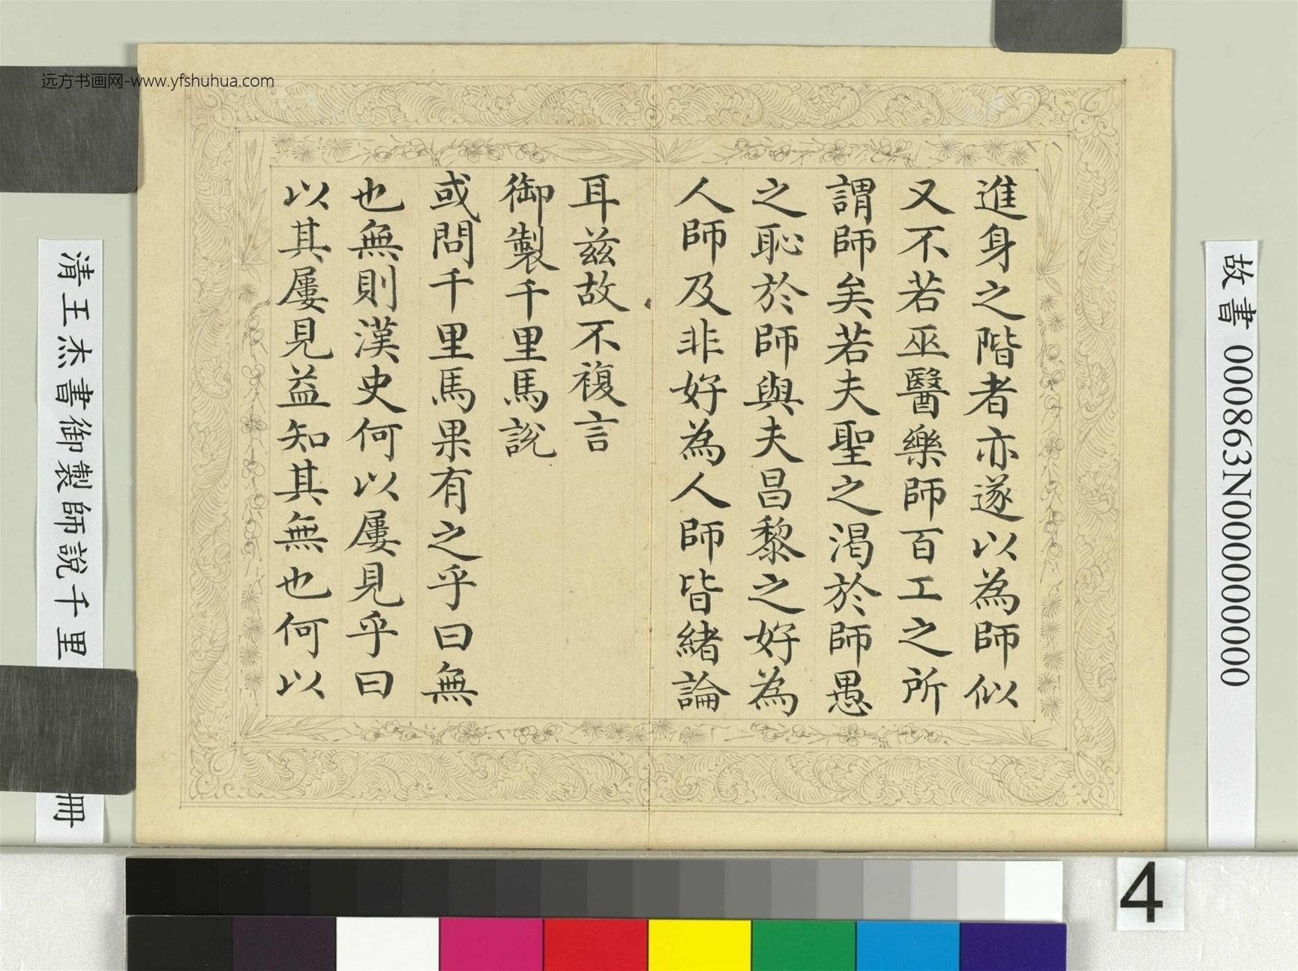 远方书画网-www.yfshuhua.com
進身之階者亦遂以為師似
又不若巫醫樂師百工之所
謂師矣若夫聖之渴於師愚
之恥於師與夫昌黎之好為
人師及非好為人師皆緒論
耳茲故不複言
御製千里馬説
或問千里馬果有之乎曰無
也無則漢史何以屢見乎曰
以其屢見益知其無也何以
故書 000863N000000000
清王杰書御製師說千里
冊
4